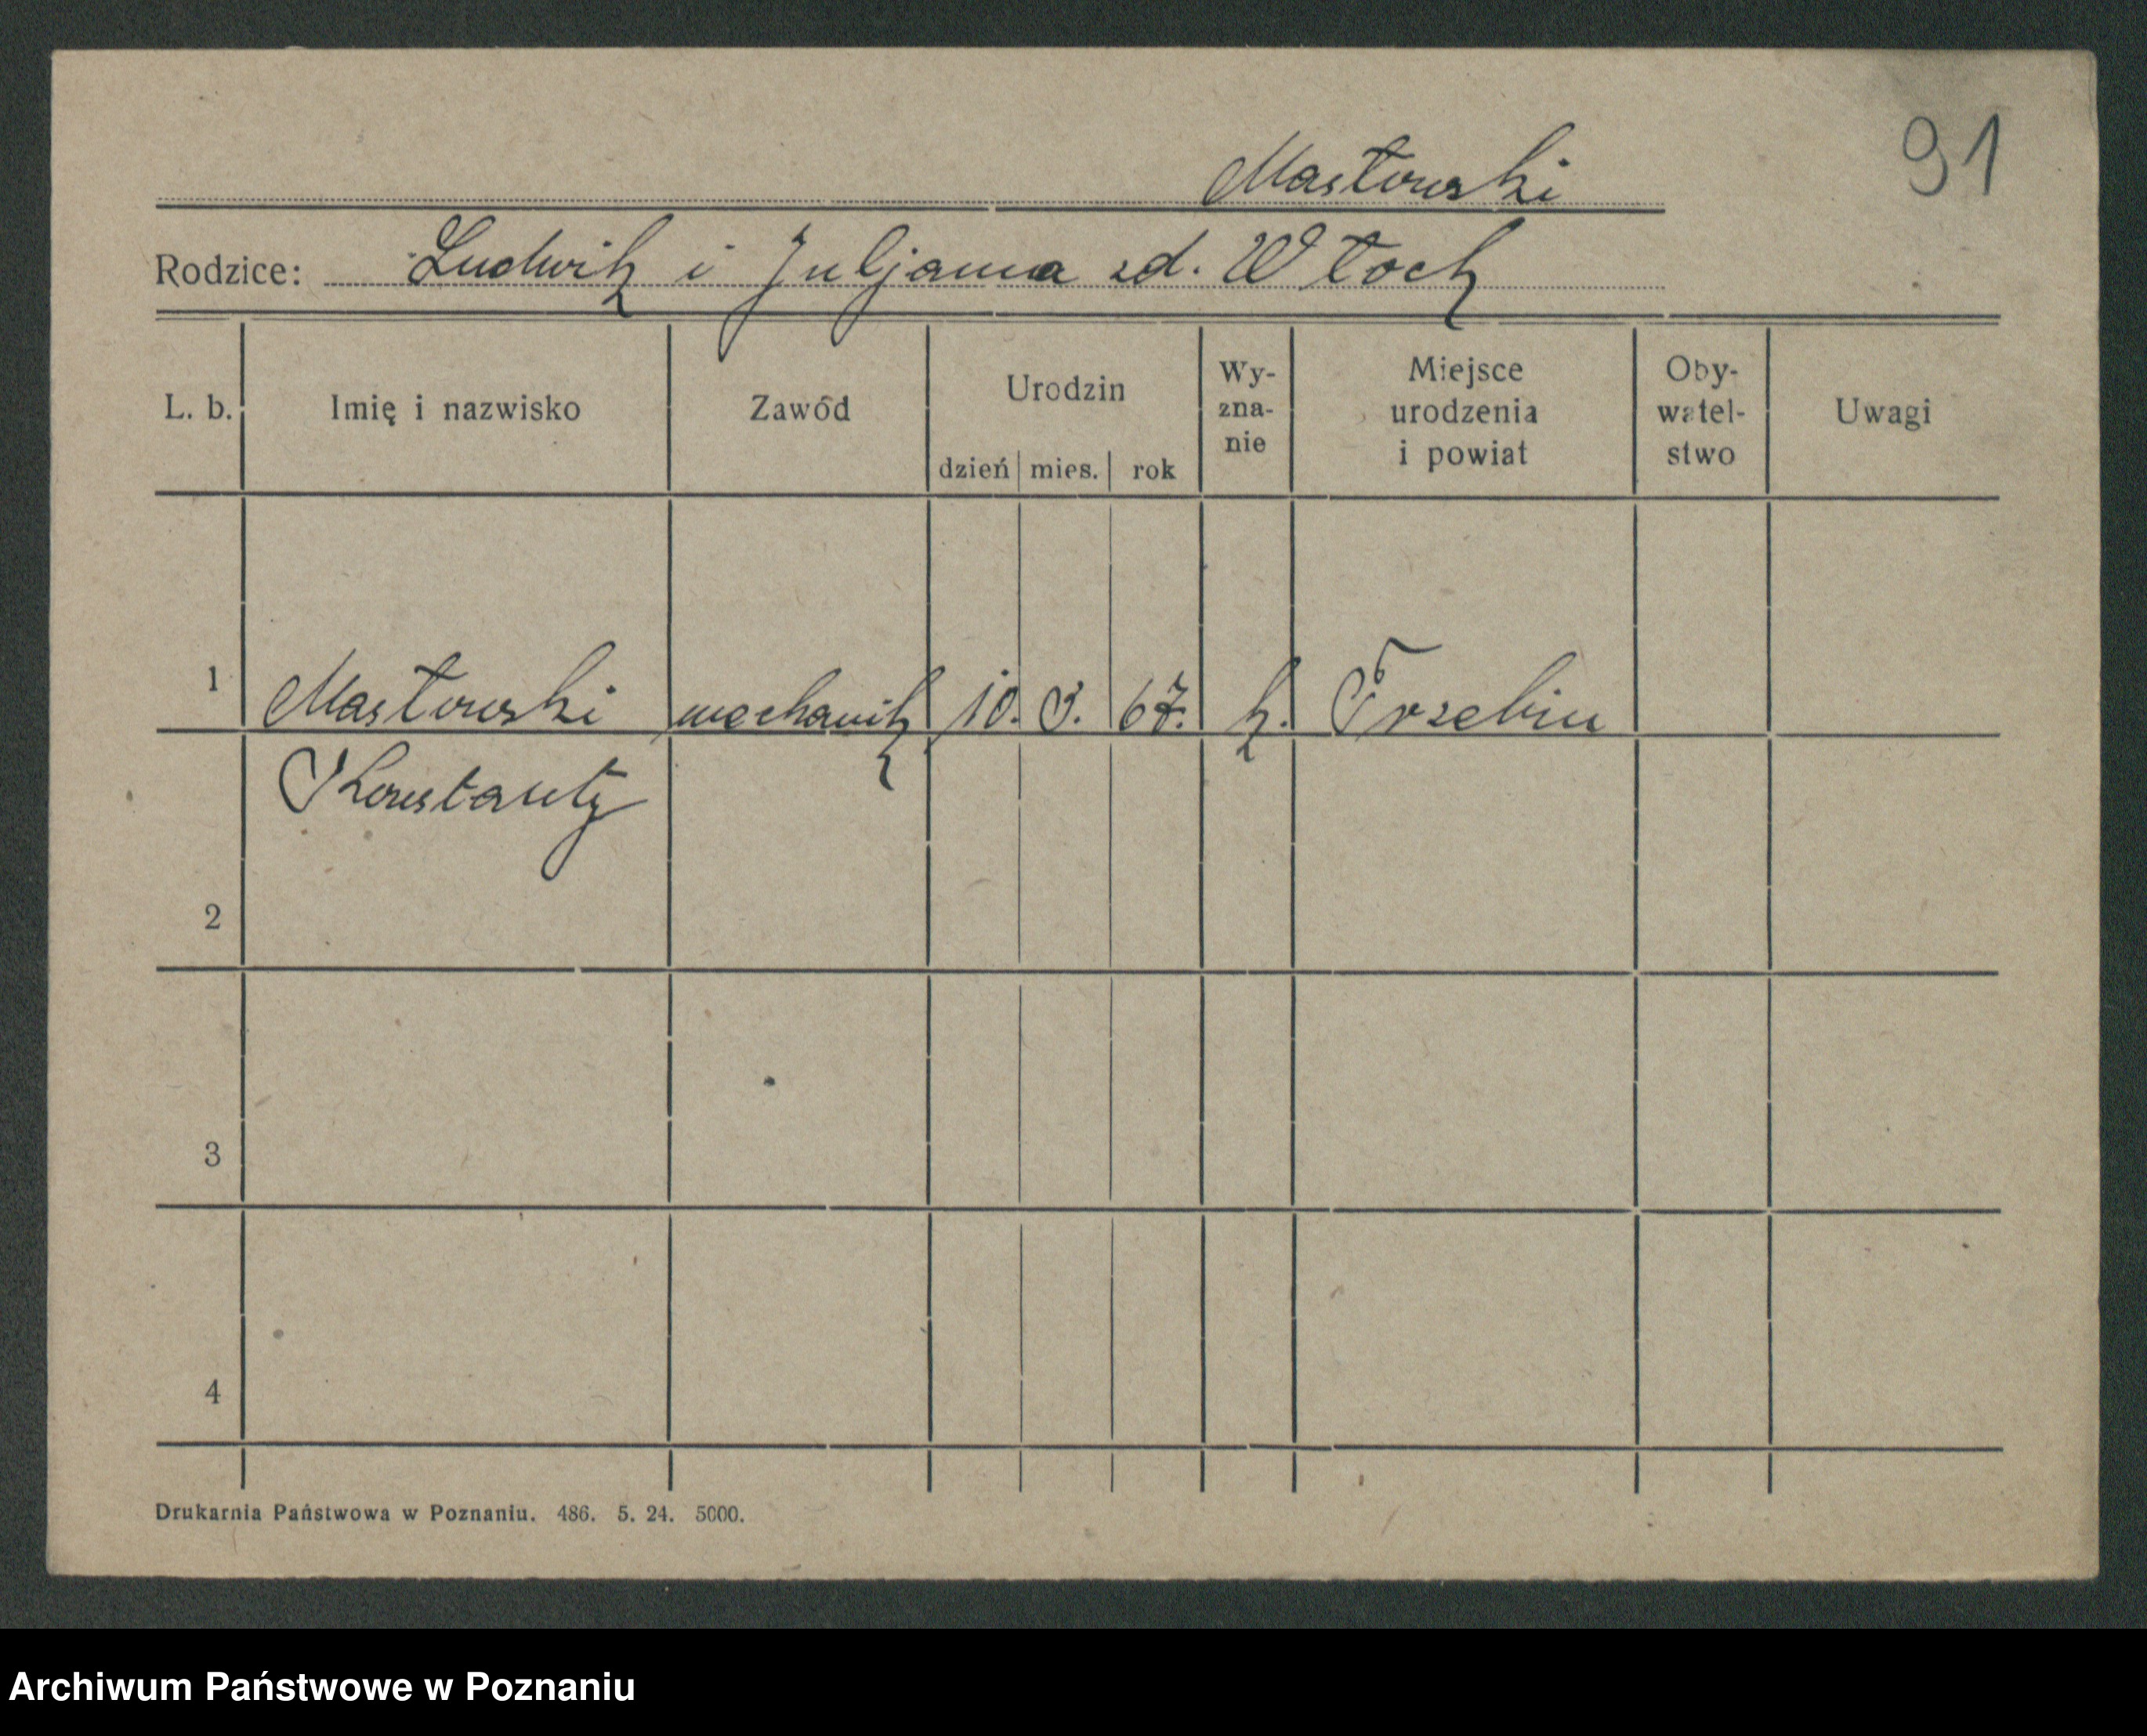 91
Masłowski
Rodzice: Ludwik i Juljanna zd. Włoch
L. b. Imię i nazwisko Zawód Urodzin dzień mies. rok Wy-zna-nie Miejsce urodzenia i powiat Oby-watel-stwo Uwagi
1 Masłowski mechanik 10. 3. 67. k. Trzebin
Konstanty
2
3
4
Drukarnia Państwowa w Poznaniu. 486. 5. 24. 5000.
Archiwum Państwowe w Poznaniu